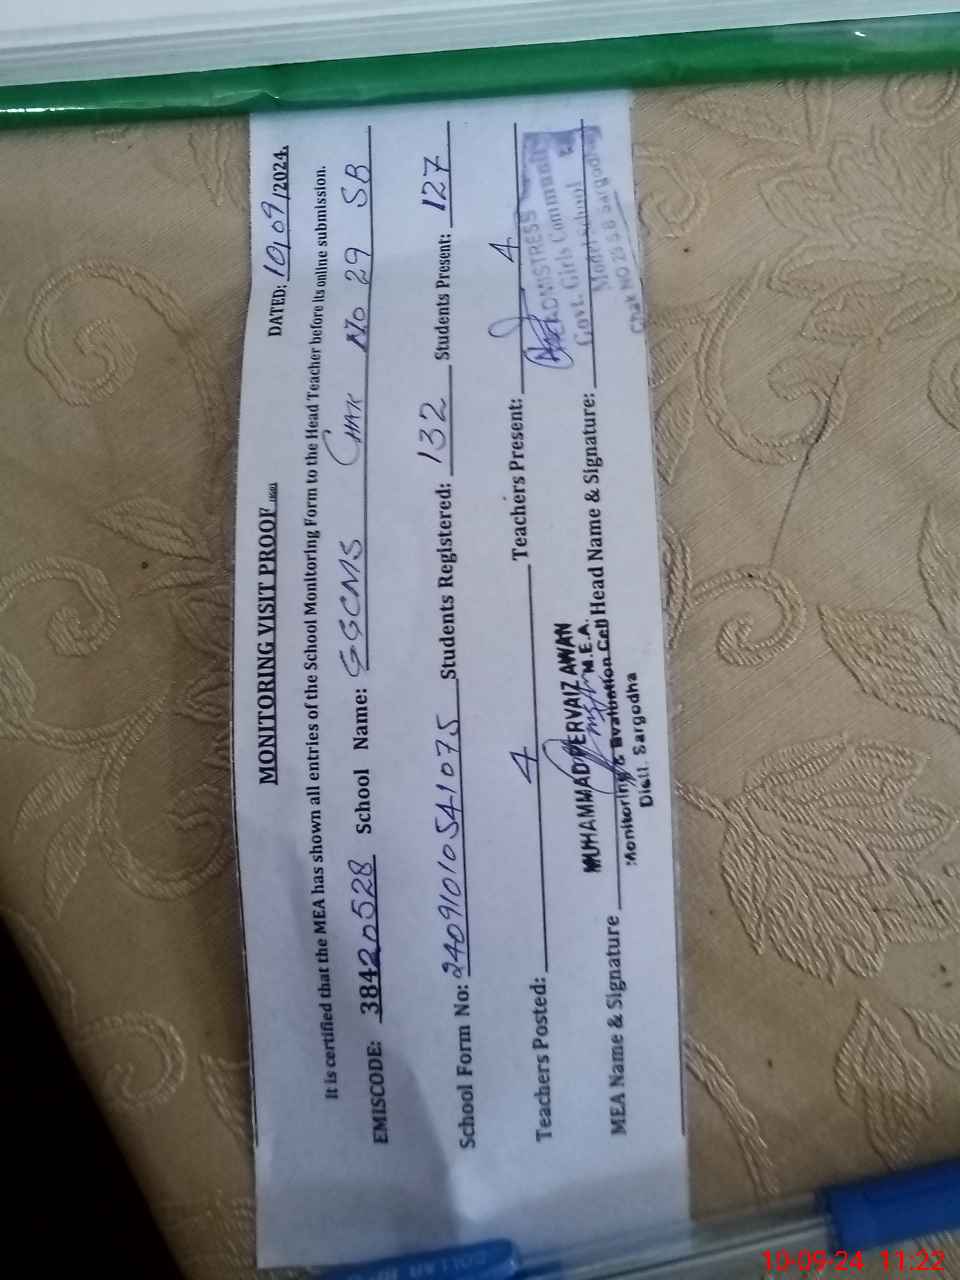 MONITORING VISIT PROOF
DATED: 10/09/2024.
It is certified that the MEA has shown all entries of the School Monitoring Form to the Head Teacher before its online submission.
EMISCODE: 38420528 School Name: GGCMS CHAK NO 29 SB
School Form No: 2409101054 1075 Students Registered: 132 Students Present: 127
Teachers Posted: 4 Teachers Present: 4
MEA Name & Signature Head Name & Signature:
MUHAMMAD PERVAIZ AWAN
M.E.A.
Monitoring & Evaluation Cell
Distt. Sargodha
HEADMISTRESS
Govt. Girls Community
Model School
Chak NO 29 S.B Sargodha
10-09-24 11:22